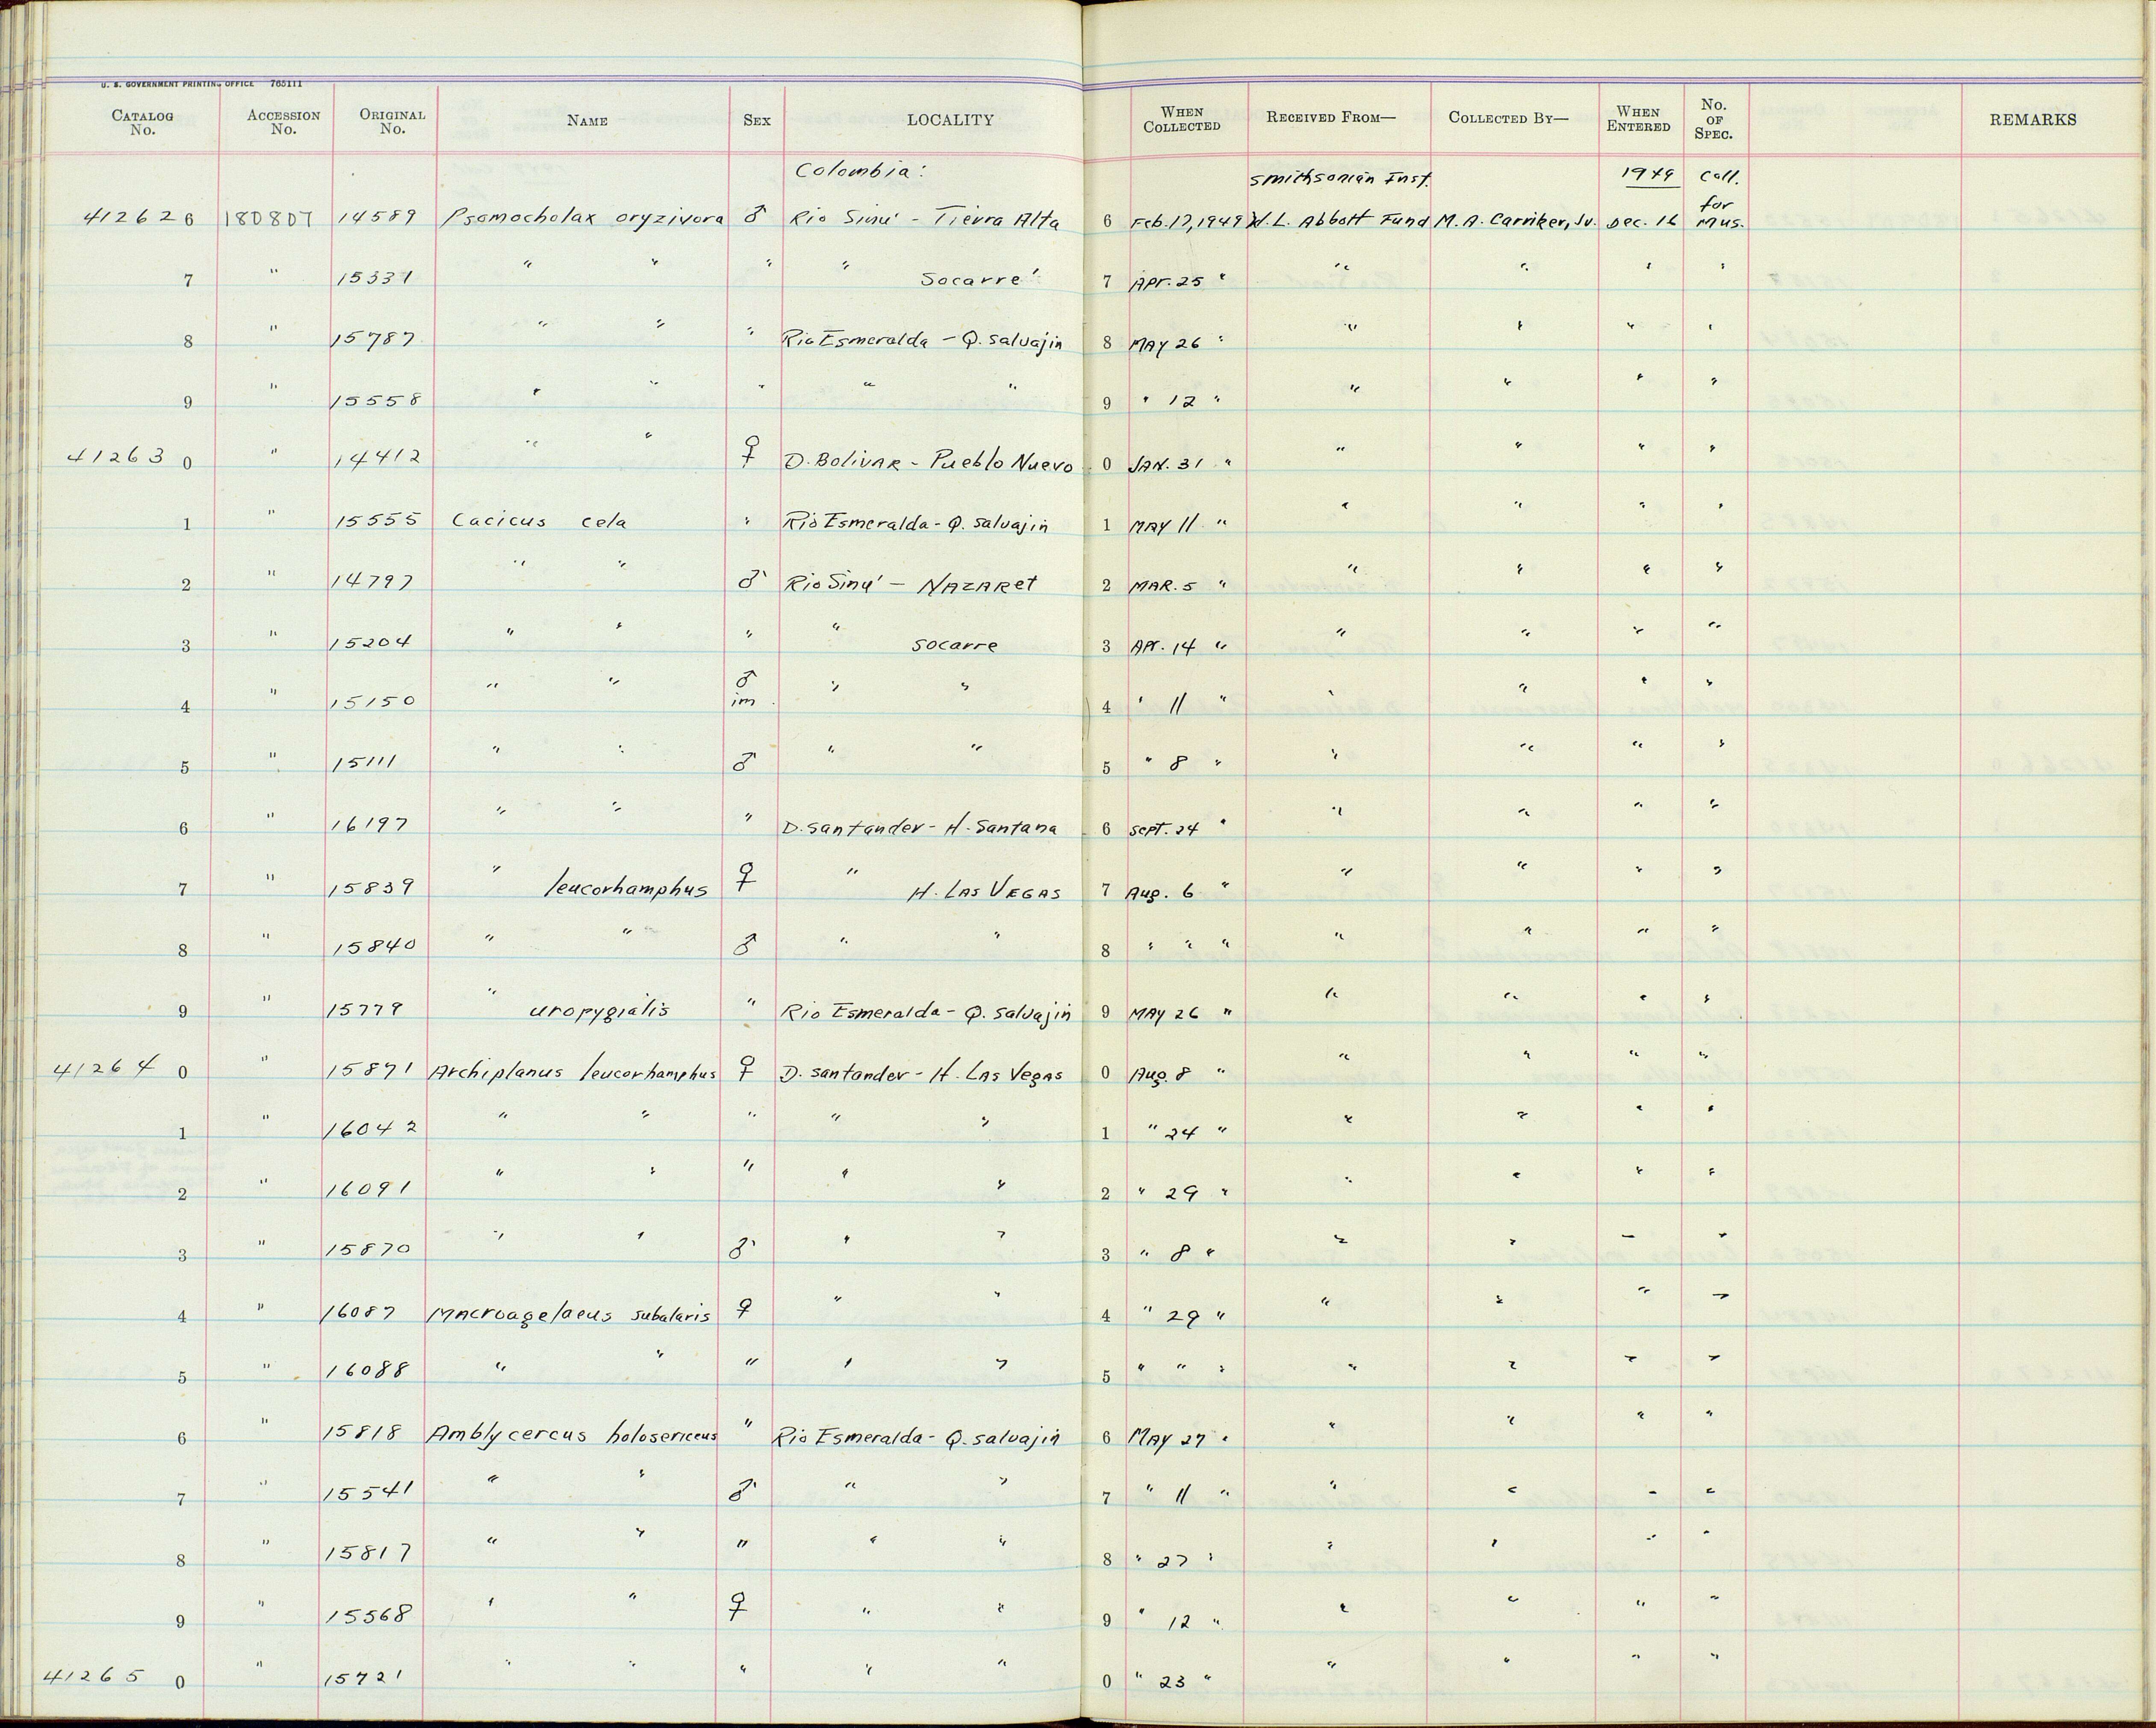 U. S. GOVERNMENT PRINTING OFFICE 765111
CATALOG No. ACCESSION No. ORIGINAL No. NAME SEX LOCALITY WHEN COLLECTED RECEIVED FROM— COLLECTED BY— WHEN ENTERED No. OF SPEC. REMARKS
Colombia: Smithsonian Inst. 1949 Coll. for
412626 180807 14589 Psomocholax oryzivora ♂ Rio Sinu' - Tierra Alta 6 Feb. 17, 1949 W. L. Abbott Fund M. A. Carriker, Jr. Dec. 16 Mus.
7 " 15331 " " " " Socarre' 7 Apr. 25 " " " " "
8 " 15787 " " " Rio Esmeralda - Q. Salvajin 8 MAY 26 " " " " "
9 " 15558 " " " " " 9 " 12 " " " " "
41263 0 " 14412 " " ♀ D. Bolivar - Pueblo Nuevo 0 JAN. 31 " " " " "
1 " 15555 Cacicus cela " Rio Esmeralda - Q. Salvajin 1 MAY 11 " " " " "
2 " 14797 " " ♂ Rio Sinu' - Nazaret 2 MAR. 5 " " " " "
3 " 15204 " " " " Socarre 3 Apr. 14 " " " " "
4 " 15150 " " ♂ im " " 4 " 11 " " " " "
5 " 15111 " " ♂ " " 5 " 8 " " " " "
6 " 16197 " " " D. Santander - H. Santana 6 Sept. 24 " " " " "
7 " 15839 " leucorhamphus ♀ " H. Las Vegas 7 Aug. 6 " " " " "
8 " 15840 " " ♂ " " 8 " " " " " " "
9 " 15779 " uropygialis " Rio Esmeralda - Q. Salvajin 9 MAY 26 " " " " "
41264 0 " 15871 Archiplanus leucorhamphus ♀ D. Santander - H. Las Vegas 0 Aug. 8 " " " " "
1 " 16042 " " " " " 1 " 24 " " " " "
2 " 16091 " " " " " 2 " 29 " " " " "
3 " 15870 " " ♂ " " 3 " 8 " " " " "
4 " 16087 Macroagelaeus subalaris ♀ " " 4 " 29 " " " " "
5 " 16088 " " " " " 5 " " " " " " "
6 " 15818 Amblycercus holosericeus " Rio Esmeralda - Q. Salvajin 6 May 27 " " " " "
7 " 15541 " " ♂ " " 7 " 11 " " " " "
8 " 15817 " " " " " 8 " 27 " " " " "
9 " 15568 " " ♀ " " 9 " 12 " " " " "
41265 0 " 15721 " " " " " 0 " 23 " " " " "